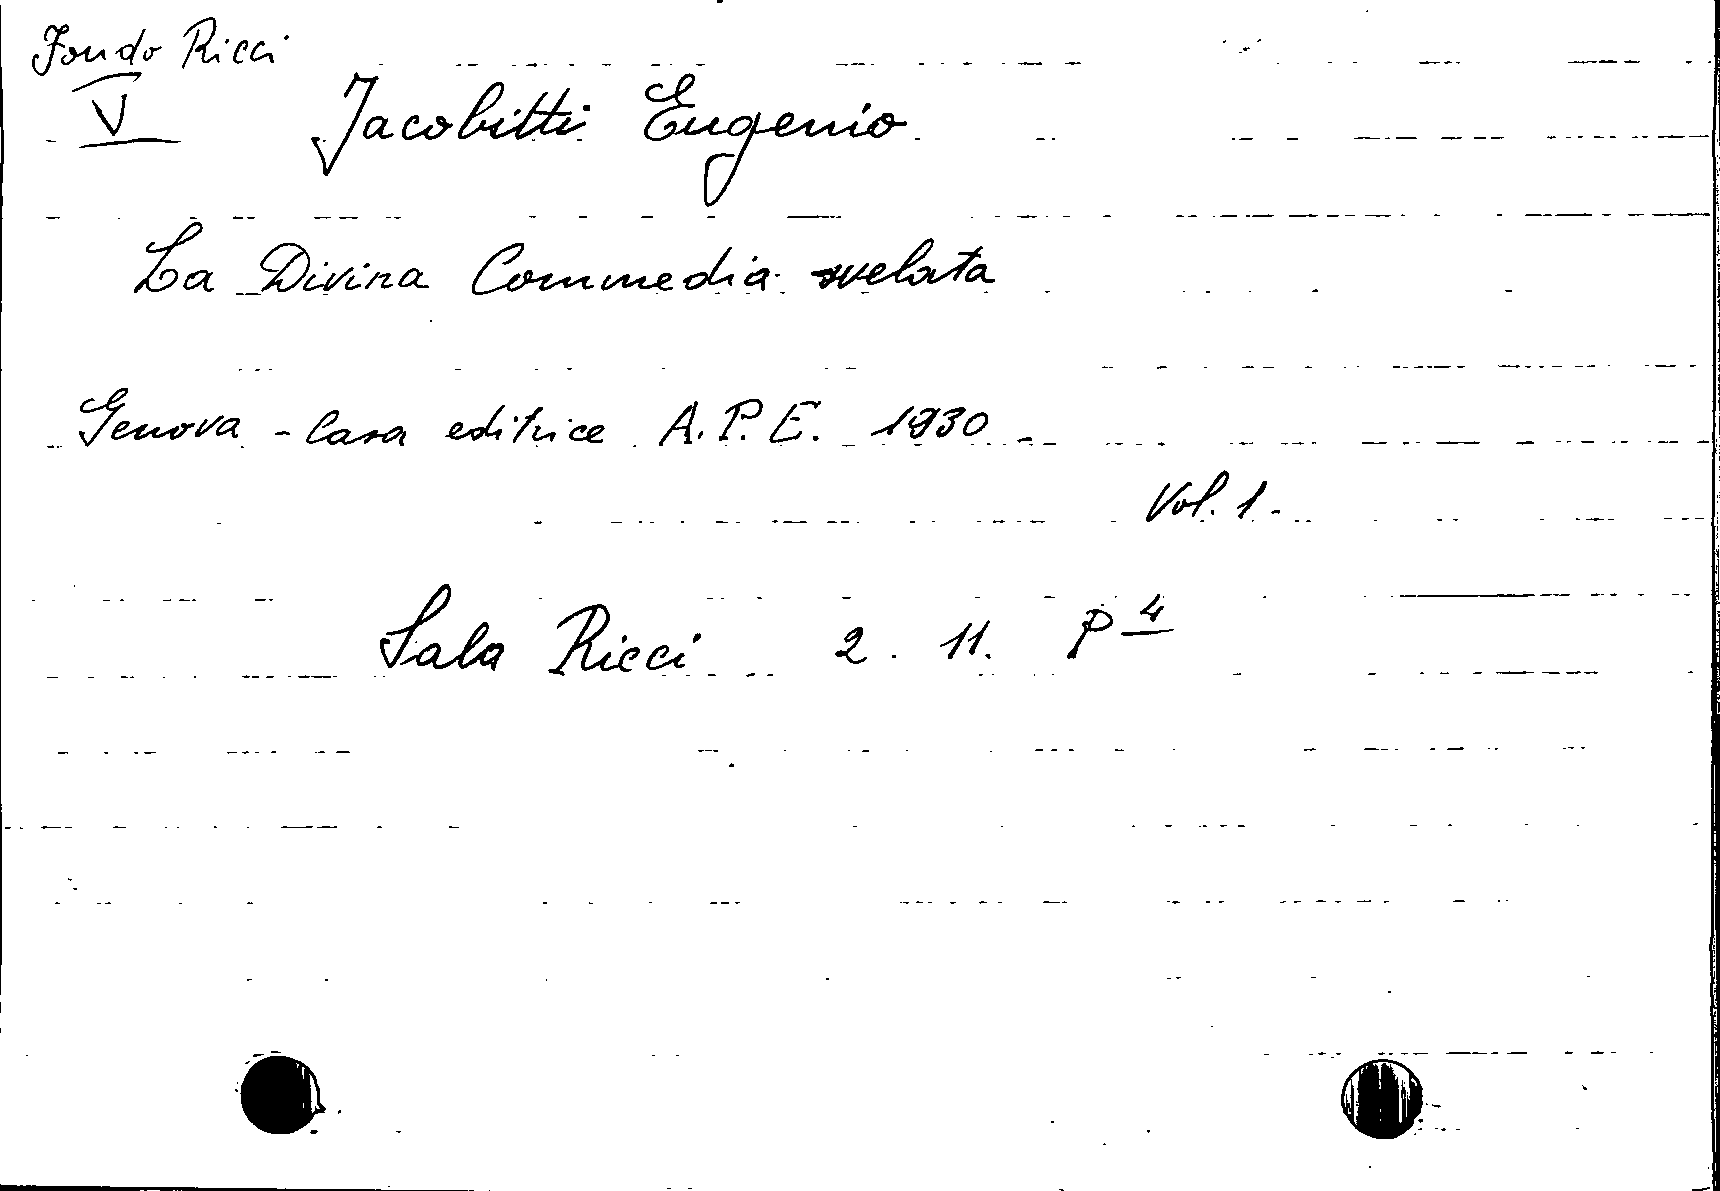 Fondo Ricci
V
Jacobitti Eugenio
La Divina Commedia svelata
Genova - Casa editrice A.P.E. 1930
Vol. 1.
Sala Ricci 2. 11. P 4